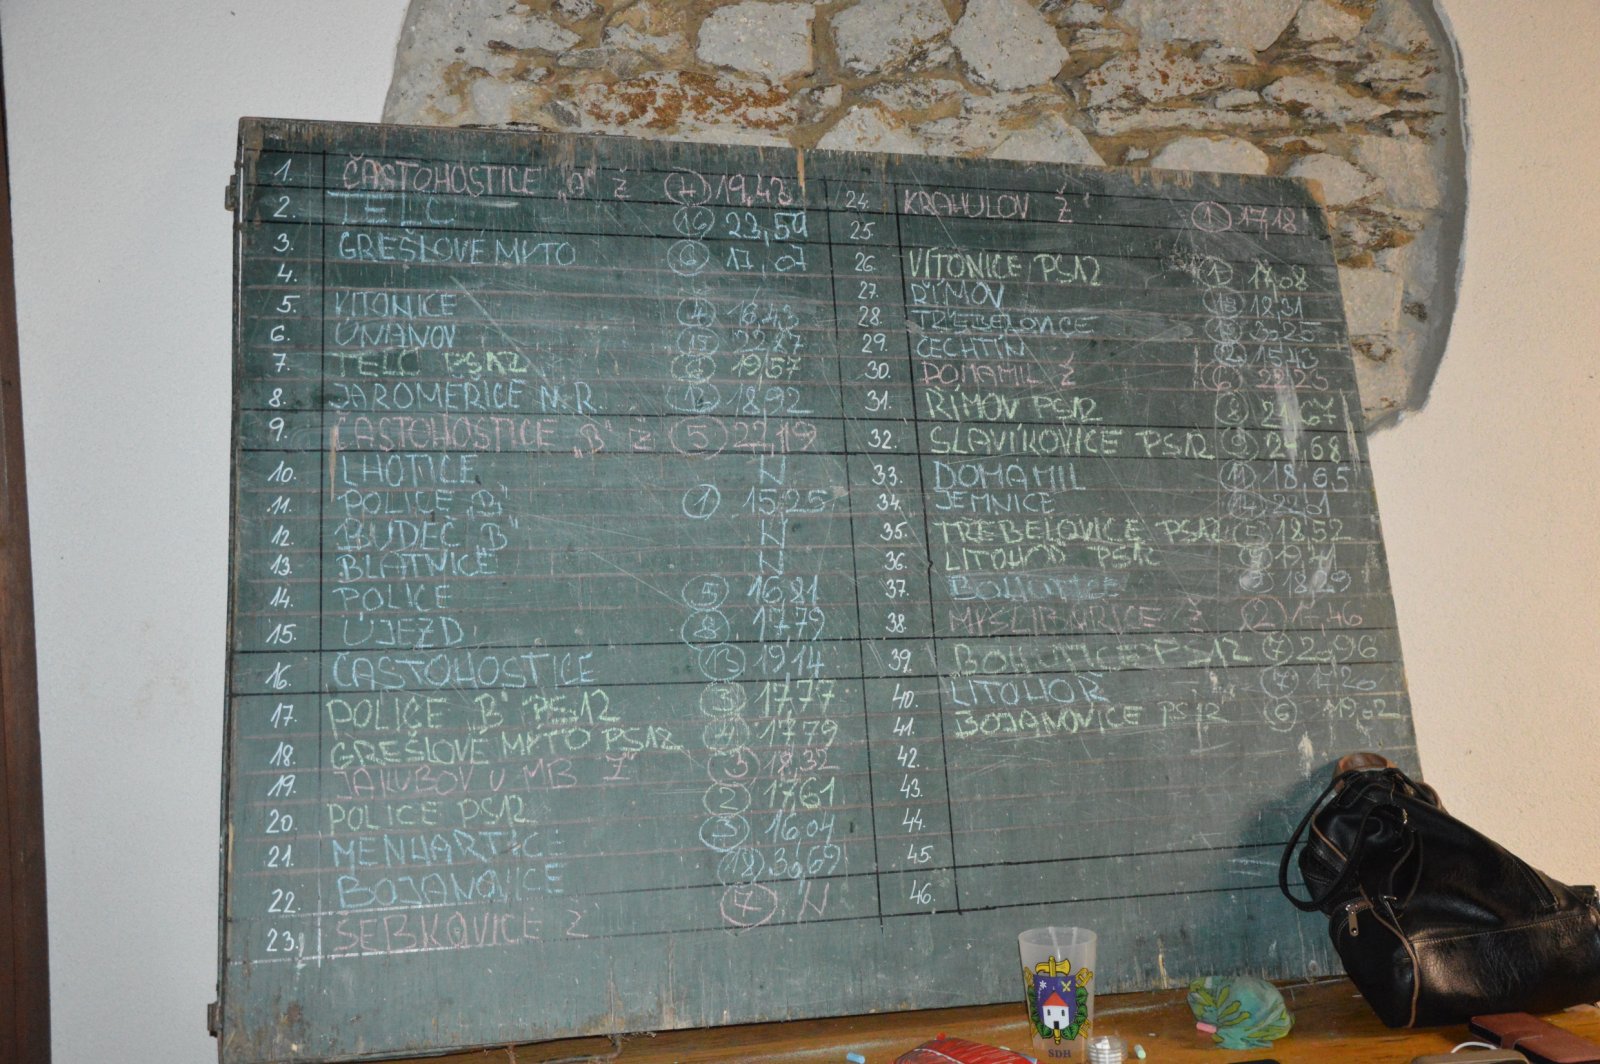 1. ČASTOHOSTICE „A" Ž 4 19,43
2. TELČ 16 23,59
3. GREŠLOVÉ MÝTO 6 17,07
4.
5. VÍTONICE 4 16,43
6. ÚNANOV 15 22,27
7. TELČ PS12
8. JAROMĚŘICE N.R. 12 18,92
9. ČASTOHOSTICE „B" Ž 5 22,19
10. LHOTICE N
11. POLICE „B" 1 15,25
12. BUDEČ B" N
13. BLATNICE N
14. POLICE 5 16,81
15. ÚJEZD 8 17,79
16. ČASTOHOSTICE 13 19,14
17. POLICE B" PS12 3 17,77
18. GREŠLOVÉ MÝTO PS12 4 17,79
19. JAKUBOV U MB Ž" 3 18,32
20. POLICE PS12 2 17,61
21. MENHARTICE 3 16,04
22. BOJANOVICE 18 36,69
23. ŠEBKOVICE Ž 7 N
24. KRAHULOV Ž" 1 17,18
25.
26. VÍTONICE PS12 1 17,08
27. ŘÍMOV 18,31
28. TŘEBELOVICE
29. ČECHTÍN 2 15,43
30. DOMAMIL Ž 6
31. ŘÍMOV PS12 8 21,67
32. SLAVÍKOVICE PS12 9
33. DOMAMIL 11 18,65
34. JEMNICE 14
35. TŘEBELOVICE PS12 5 18,52
36. LITOHOŘ PS12
37. BOHUTICE
38. MYSLIBOŘICE Ž 2 17,46
39. BOHUTICE PS12 7
40. LITOHOŘ 7 17,20
41. BOJANOVICE PS12 6 19,02
42.
43.
44.
45.
46.
SDH